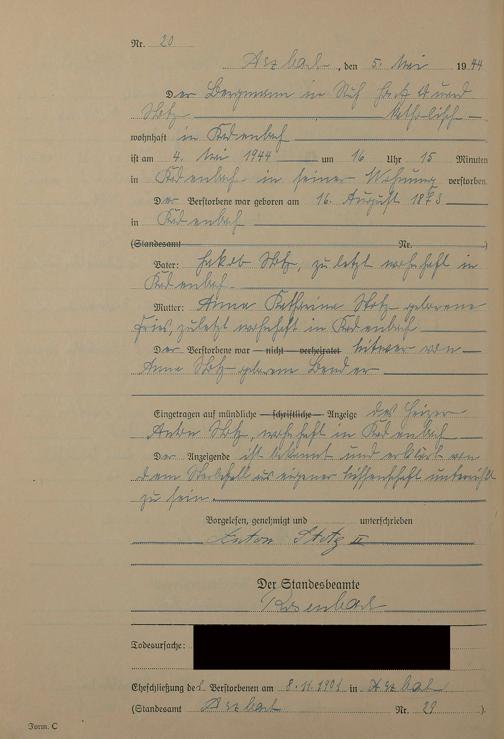 Nr. 20
Arzbach, den 5. Mai 1944
Der Bergmann in Ruh
Stotz katholisch
wohnhaft in Kadenbach
ist am 4. Mai 1944 um 16 Uhr 15 Minuten
in Kadenbach in seiner Wohnung verstorben.
Der Verstorbene war geboren am 16. August 1873
in Kadenbach
(Standesamt Nr. )
Vater: Jakob Stotz, zuletzt wohnhaft in
Kadenbach
Mutter: Anna Katharina Stotz geborene
Fries, zuletzt wohnhaft in Kadenbach
Der Verstorbene war nicht verheiratet Witwer von
Anna Stotz geborene Bender
Eingetragen auf mündliche schriftliche Anzeige des Heizer
Anton Stotz, wohnhaft in Kadenbach
Der Anzeigende ist bekannt und erklärt von
dem Sterbefall aus eigener Wissenschaft unterrichtet
zu sein.
Vorgelesen, genehmigt und unterschrieben
Anton Stotz II
Der Standesbeamte
Todesursache:
Eheschließung des Verstorbenen am 8.11.1901 in Arzbach
(Standesamt Arzbach Nr. 29 ).
Form. C